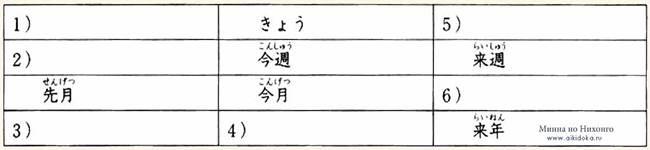 1) きょう 5)
2) 今週 来週
先月 今月 6)
3) 4) 来年
こんしゅう らいしゅう
せんげつ こんげつ
らいねん
Минна но Нихонго
www.aikidoka.ru